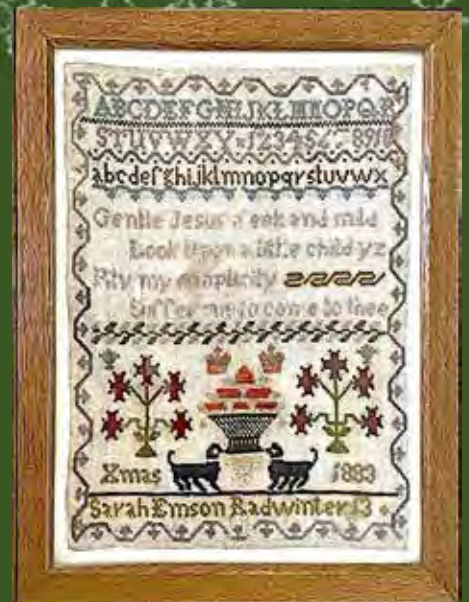 ABCDEFGHIJKLMNOPQR
STUVWXY 12345 8910
abcdefghijklmnopqrstuvwx
Gentle Jesus meek and mild
Look Upon a little child yz
Pity my simplicity
Suffer me to come to thee
Xmas 1883
Sarah Emson Radwinter 13